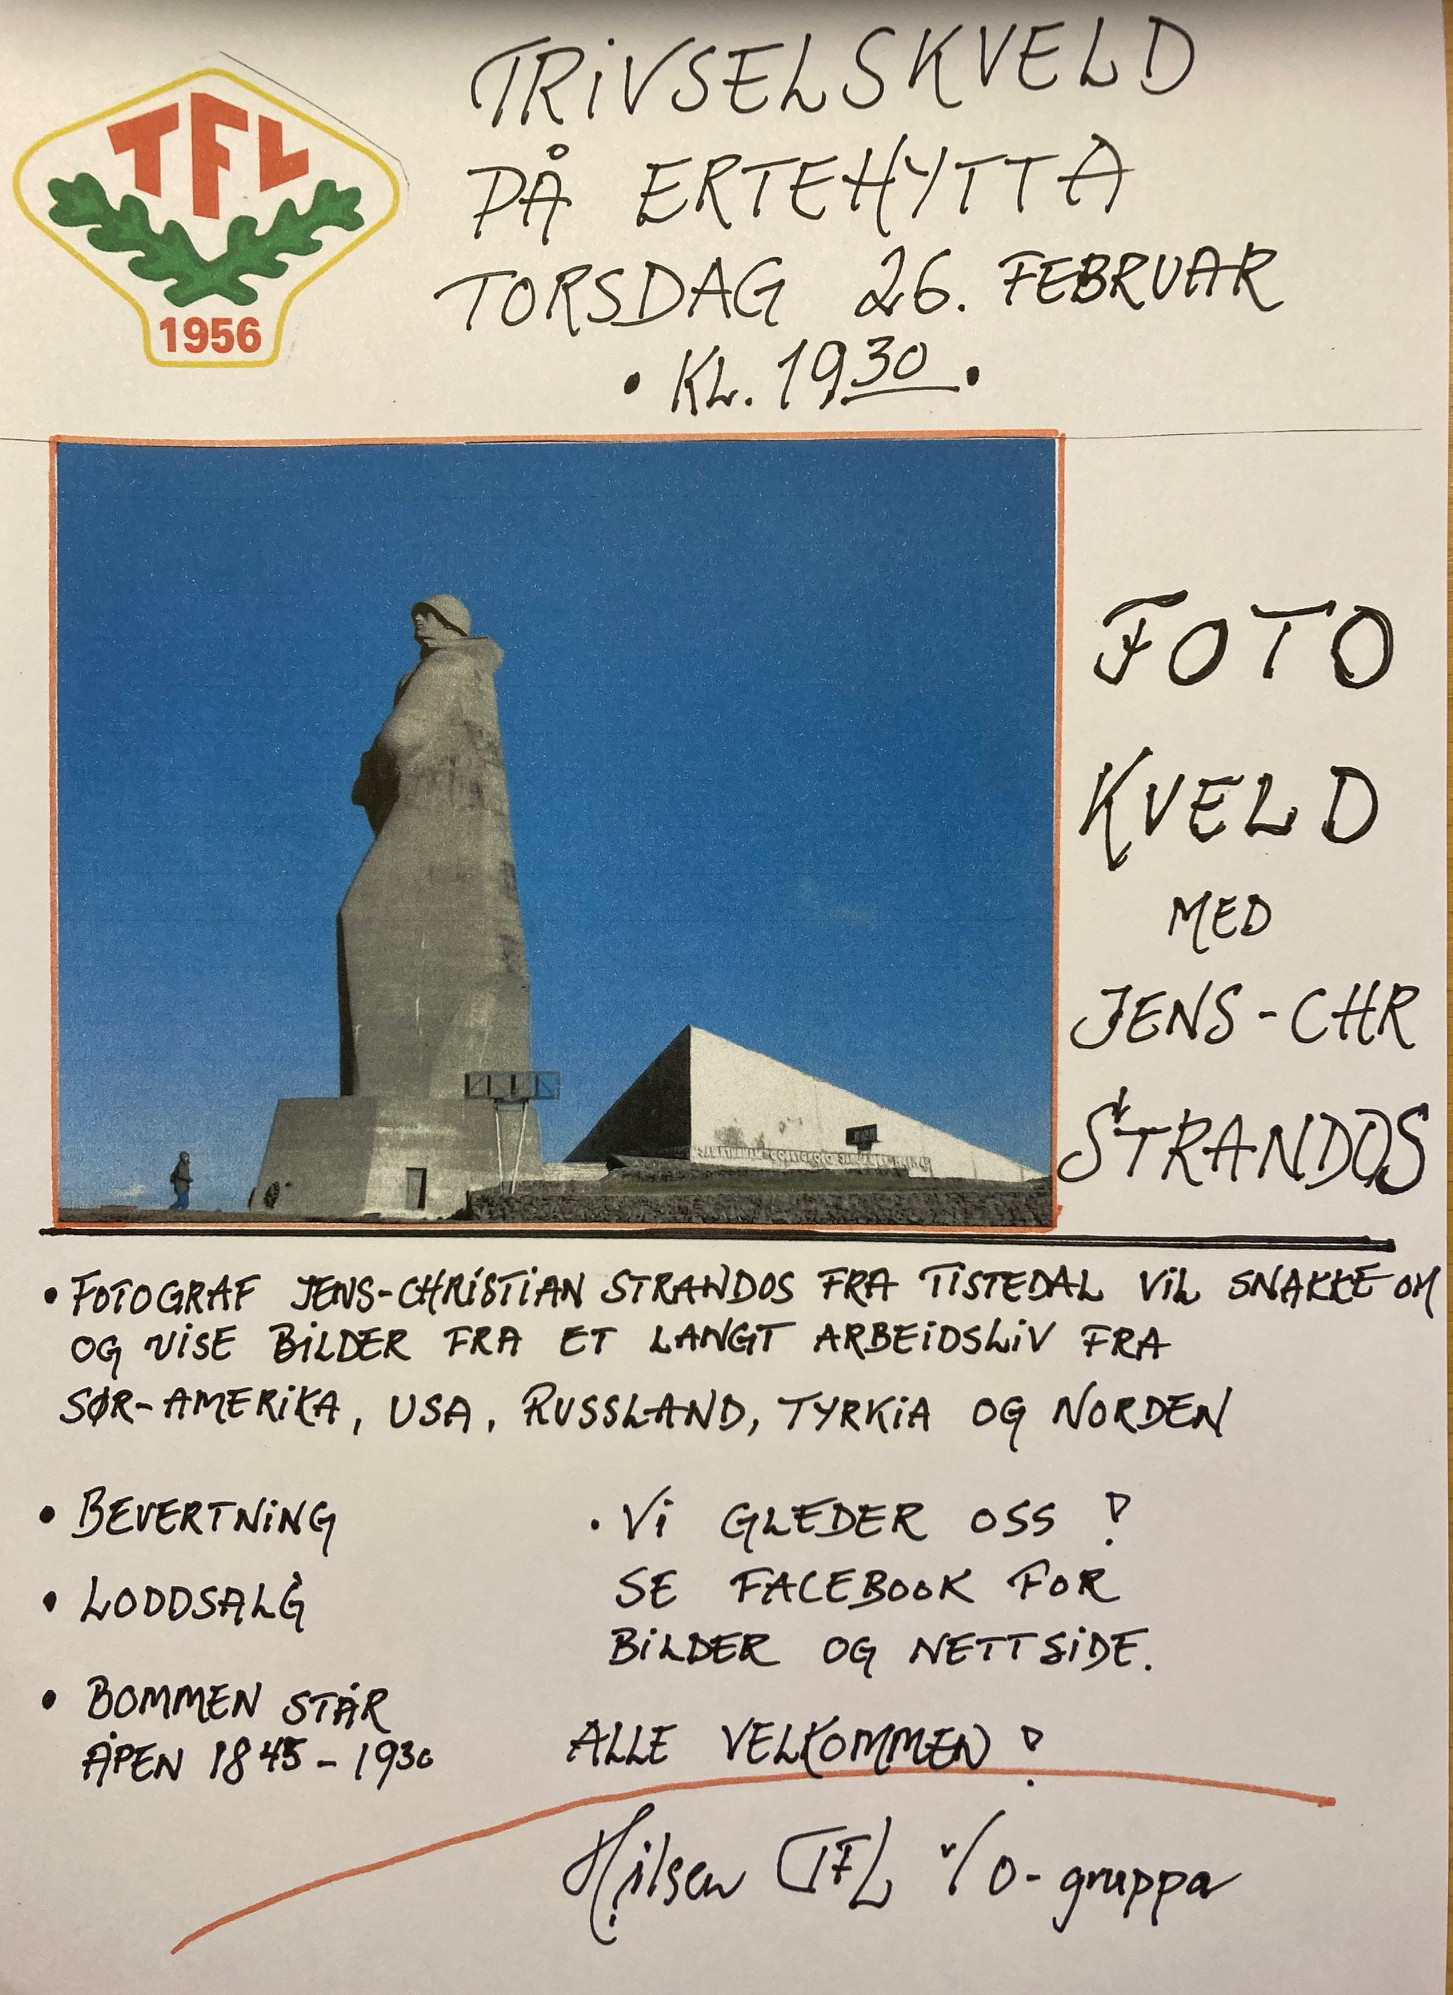 TFL
1956
TRIVSELSKVELD
PÅ ERTEHYTTA
TORSDAG 26. FEBRUAR
• KL. 1930 •
FOTO
KVELD
MED
JENS-CHR
STRANDOS
• FOTOGRAF JENS-CHRISTIAN STRANDOS FRA TISTEDAL VIL SNAKKE OM
OG VISE BILDER FRA ET LANGT ARBEIDSLIV FRA
SØR-AMERIKA, USA, RUSSLAND, TYRKIA OG NORDEN
• BEVERTNING
• LODDSALG
• BOMMEN STÅR
ÅPEN 1845 - 1930
• VI GLEDER OSS !
SE FACEBOOK FOR
BILDER OG NETTSIDE.
ALLE VELKOMMEN !
Hilsen TFL v/ O-gruppa